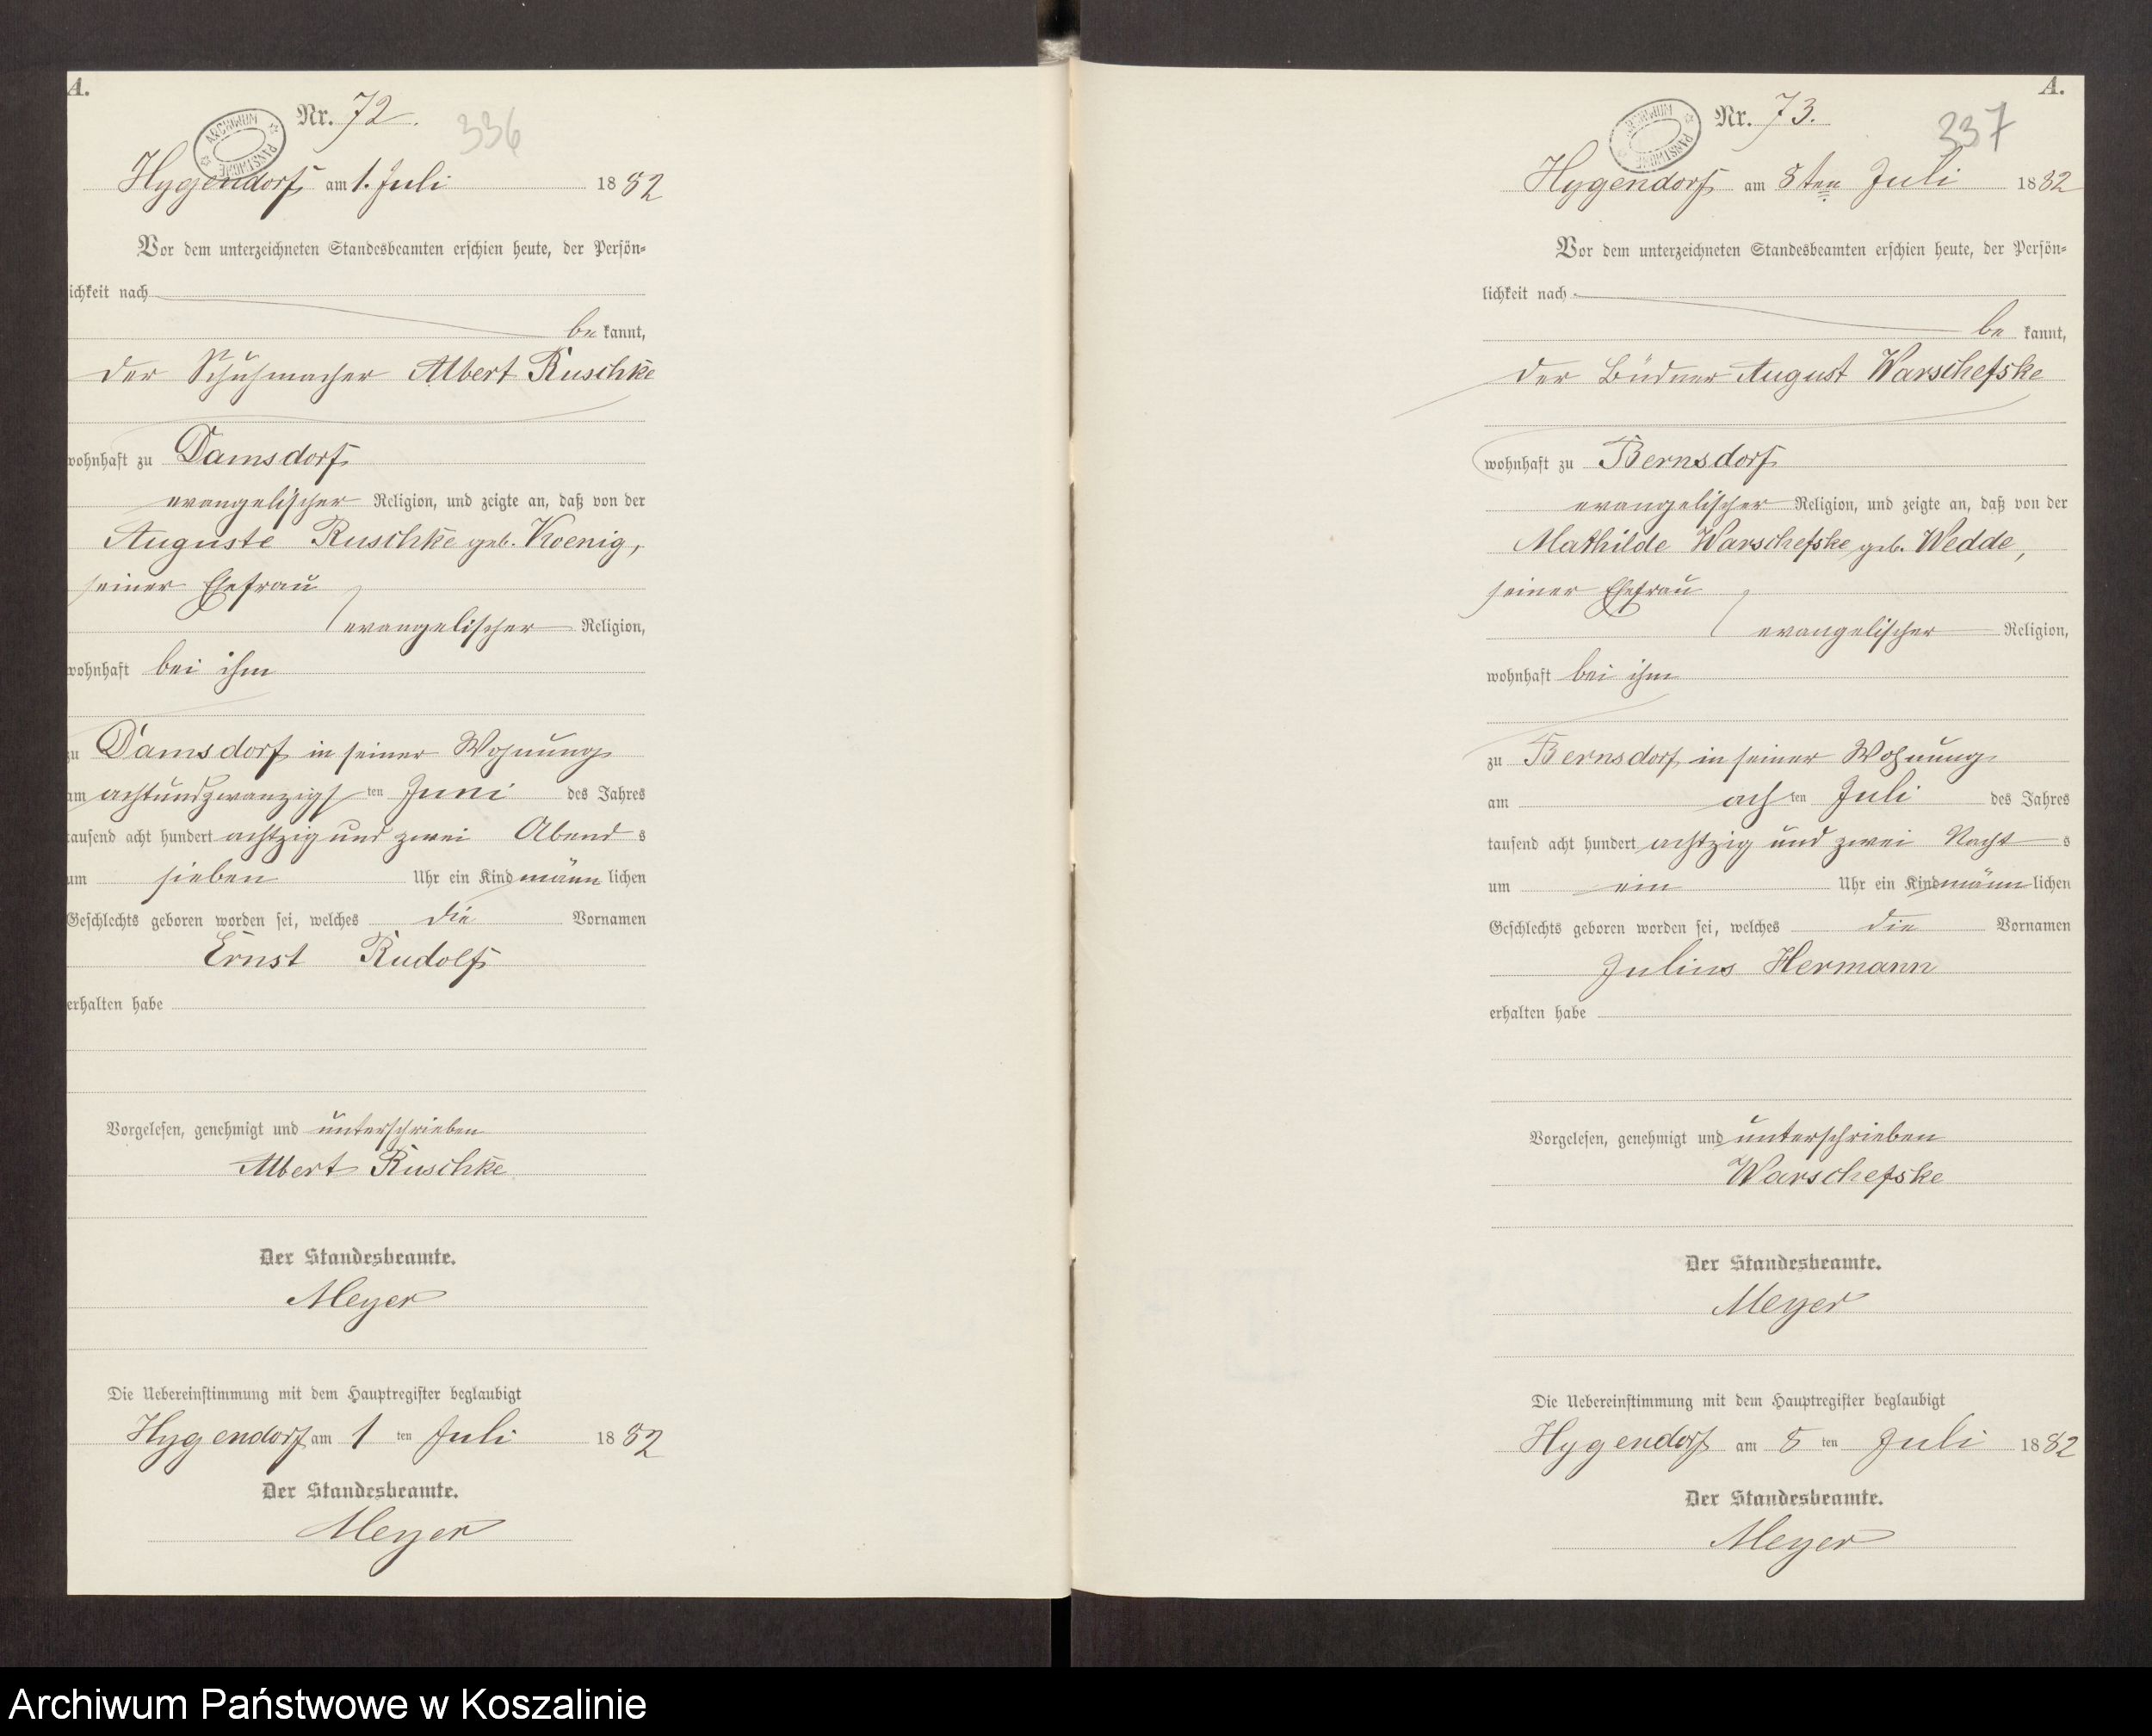 A.
Nr. 72.
336
ARCHIWUM PAŃSTWOWE
Hygendorf am 1. Juli 1882
Vor dem unterzeichneten Standesbeamten erschien heute, der Persön=
ichkeit nach
be kannt,
der Schuhmacher Albert Ruschke
wohnhaft zu Damsdorf
evangelischer Religion, und zeigte an, daß von der
Auguste Ruschke geb. Koenig,
seiner Ehefrau
evangelischer Religion,
wohnhaft bei ihm
zu Damsdorf in seiner Wohnung
am achtundzwanzigsten Juni des Jahres
tausend acht hundert achtzig und zwei Abends
um sieben Uhr ein Kind männlichen
Geschlechts geboren worden sei, welches die Vornamen
Ernst Rudolf
erhalten habe
Vorgelesen, genehmigt und unterschrieben
Albert Ruschke
Der Standesbeamte.
Meyer
Die Uebereinstimmung mit dem Hauptregister beglaubigt
Hygendorf am 1 ten Juli 1882
Der Standesbeamte.
Meyer
A.
Nr. 73.
337
ARCHIWUM PAŃSTWOWE
Hygendorf am 8ten Juli 1882
Vor dem unterzeichneten Standesbeamten erschien heute, der Persön=
lichkeit nach
be kannt,
der Büdner August Warschefske
wohnhaft zu Bernsdorf
evangelischer Religion, und zeigte an, daß von der
Mathilde Warschefske geb. Wedde,
seiner Ehefrau
evangelischer Religion,
wohnhaft bei ihm
zu Bernsdorf in seiner Wohnung
am achten Juli des Jahres
tausend acht hundert achtzig und zwei Nachts
um ein Uhr ein Kind männlichen
Geschlechts geboren worden sei, welches die Vornamen
Julius Hermann
erhalten habe
Vorgelesen, genehmigt und unterschrieben
Warschefske
Der Standesbeamte.
Meyer
Die Uebereinstimmung mit dem Hauptregister beglaubigt
Hygendorf am 8 ten Juli 1882
Der Standesbeamte.
Meyer
Archiwum Państwowe w Koszalinie